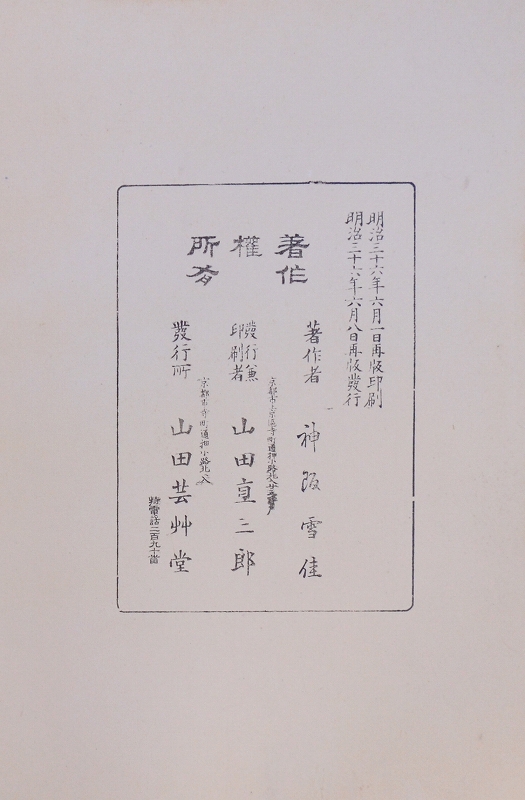 明治三十六年六月一日再版印刷
明治三十六年六月八日再版發行
著作
權
所有
著作者 神坂雪佳
京都市上京區寺町通押小路北
發行兼
印刷者 山田直三郎
京都市寺町通押小路北入
發行所 山田芸艸堂
特電話二百九十番